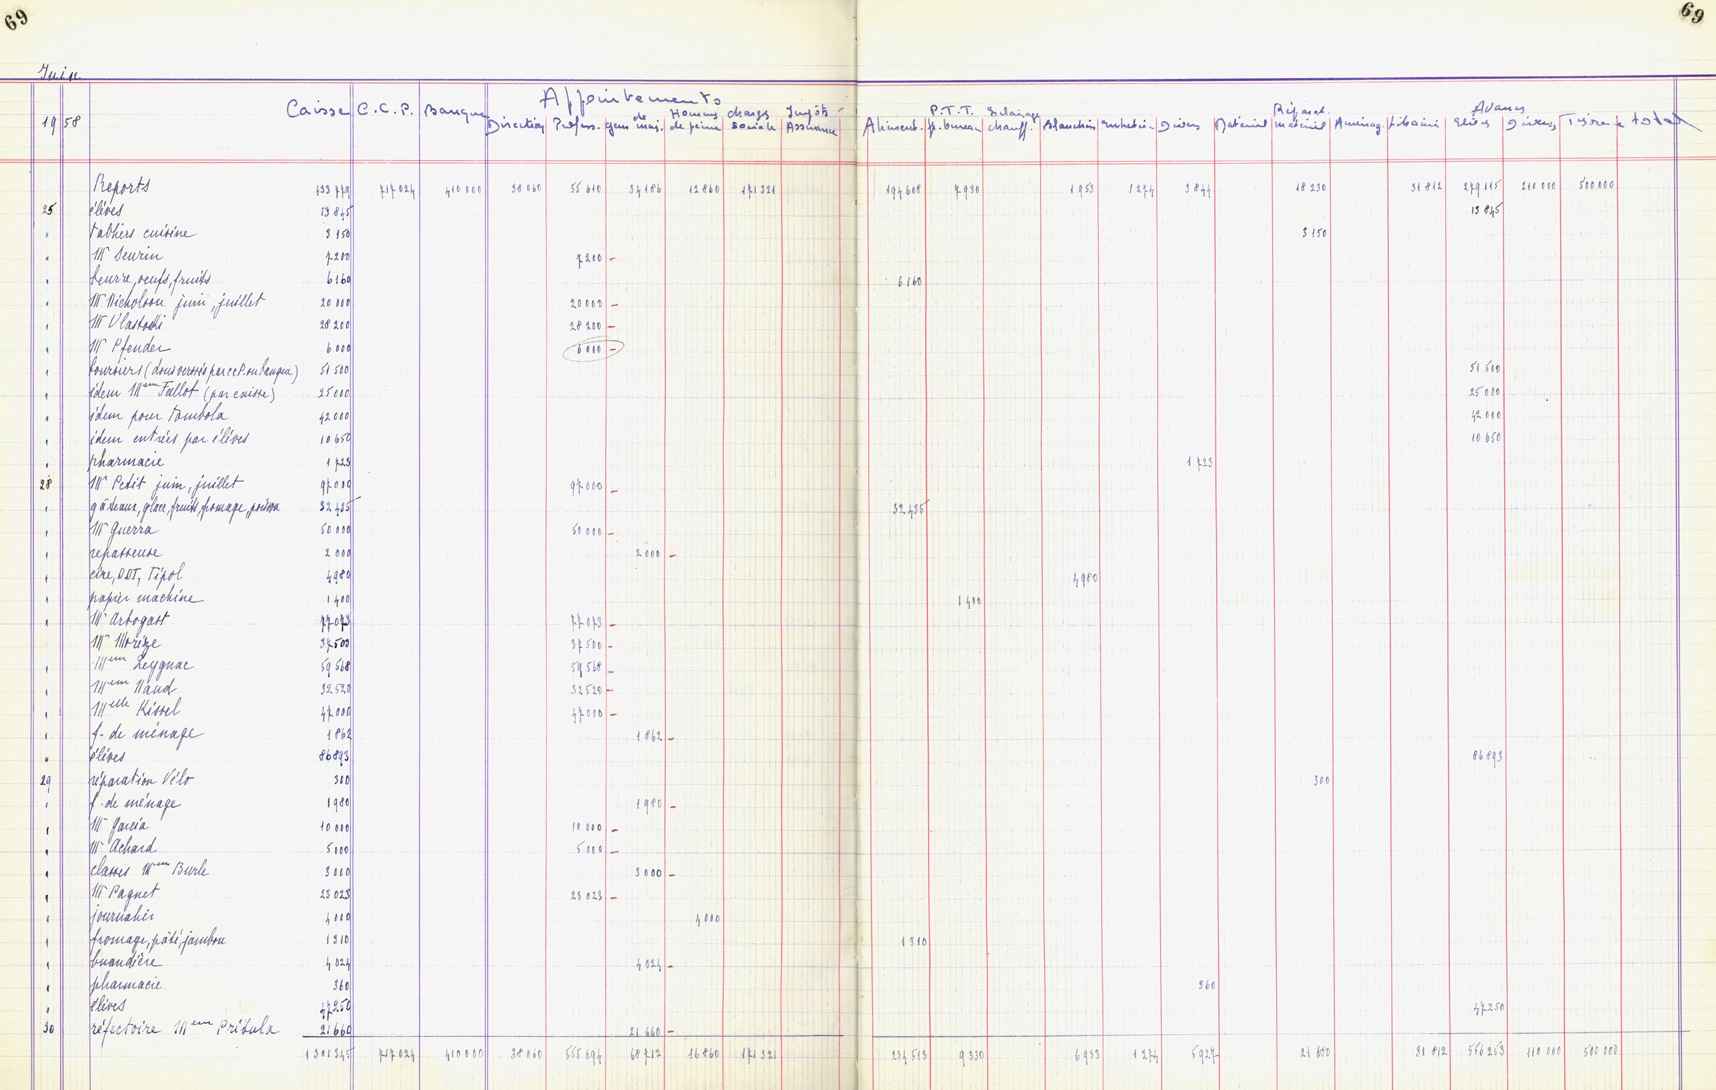 69 69
Juin
19 58 Caisse C.C.P. Banque Appointements
Direction Profess. gens de mais. Hommes de peine charges sociale Impôts Assurance Aliment. P.T.T. fr. bureau Eclairage chauff. Blanchis. entretien Divers Matériel Réparat. matériel Aménag. Librairie Avances Elèves Divers Total
Reports 133 779 717 024 410 000 38 060 55 610 34 186 12 860 171 321 194 608 7930 1953 1274 3844 18 230 31 812 279 115 210 000 500 000
25 élèves 13 845 13 845
" tabliers cuisine 3 150 3 150
" Mr Seurin 7 200 7200
" beurre, oeufs, fruits 6 160 6 160
" Mr Nicholson juin, juillet 20 000 20 000
" Mr Vlastodi 28 200 28 200
" Mr Pfender 6 000 6 000
" boursiers 51 500 51 500
" idem Mem Fallot (par caisse) 25 000 25 000
" idem pour tombola 42 000 42 000
" idem entrées par élèves 10 650 10 650
" pharmacie 1 723 1 723
28 Mr Petit juin, juillet 97 000 97 000
" gâteaux, glace, fruits, fromage, poisson 32 435 32 435
" Mr Guerra 50 000 50 000
" repasseuse 2 000 2 000
" cire, DDT, Tipol 4980 4980
" papier machine 1 400 1 400
" Mr Arbogast 77 073 77 073
" Mr Morize 37 500 37 500
" Mem Leygnac 59 568 59 568
" Mem Naud 32 520 32 520
" Melle Kissel 47 000 47 000
" f. de ménage 1 862 1 862
" élèves 86 893 86 893
29 réparation Vélo 300 300
" f. de ménage 1 980 1 980
" Mr Garcia 10 000 10 000
" Mr Achard 5 000 5 000
" classes Mem Burle 3 000 3 000
" Mr Paquet 23 023 23 023
" journalier 4 000 4 000
" fromage, pâté, jambon 1 310 1 310
" buandière 4 024 4 024
" pharmacie 360 360
" élèves 47 250 47 250
30 réfectoire Mem Pribula 21 660 21 660
1 301 345 717 024 410 000 38 060 555 694 68 712 16 860 171 321 234 513 9 330 6 933 1 274 5927 21 680 31 812 556 253 110 000 500 000